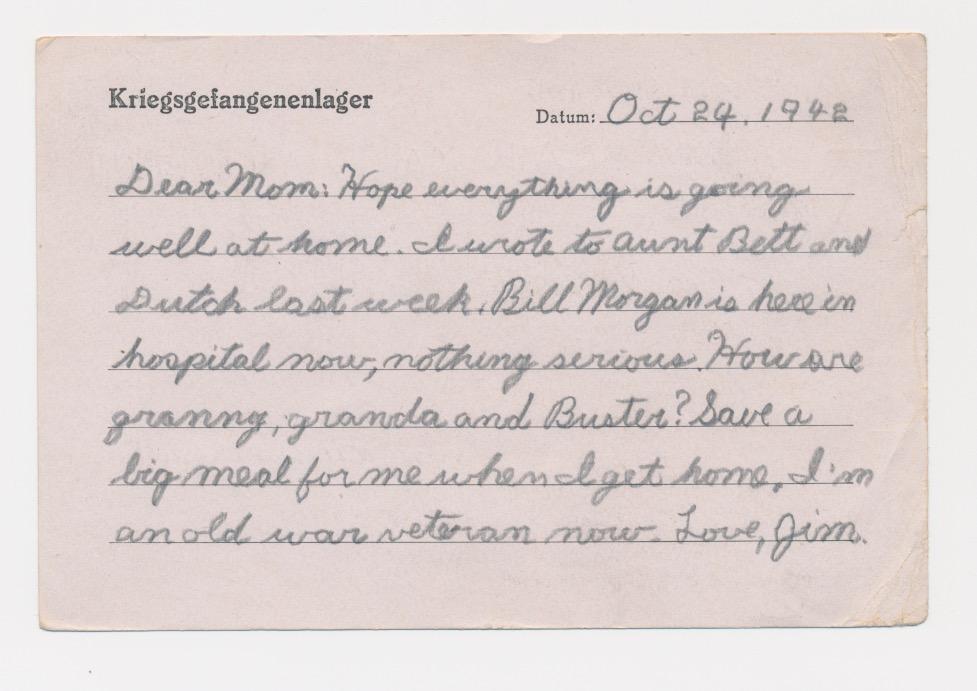 Kriegsgefangenenlager
Datum: Oct 24, 1942
Dear Mom: Hope everything is going
well at home. I wrote to aunt Bett and
Dutch last week. Bill Morgan is here in
hospital now, nothing serious. How are
granny, granda and Buster? Save a
big meal for me when I get home, I'm
an old war veteran now. Love, Jim.